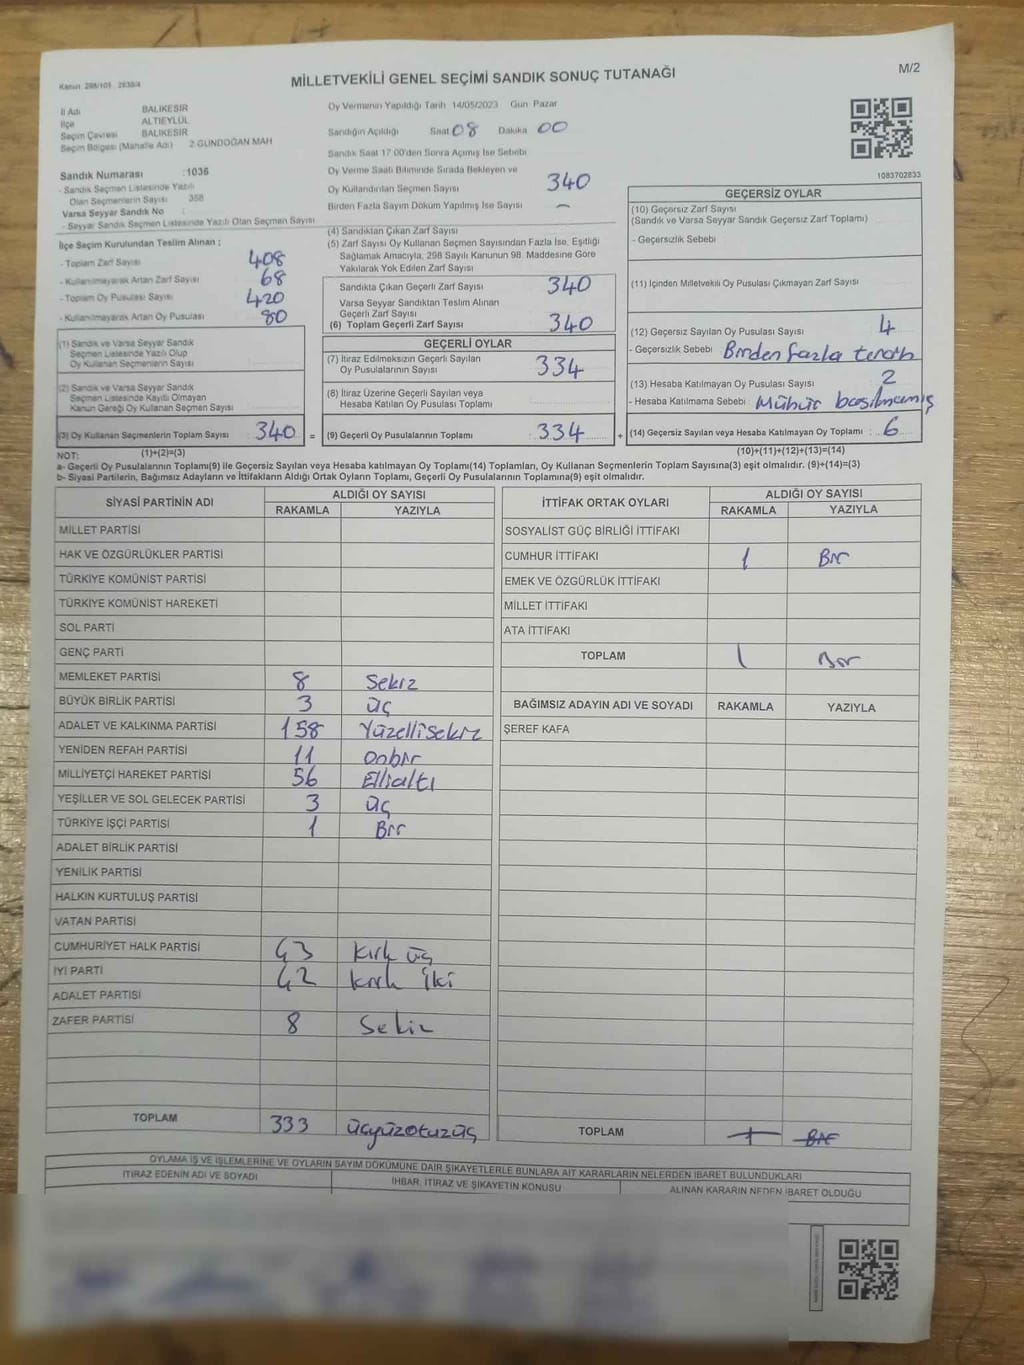 Kanun: 298/105 , 2839/4
MİLLETVEKİLİ GENEL SEÇİMİ SANDIK SONUÇ TUTANAĞI
M/2
İl Adı BALIKESİR
İlçe ALTIEYLÜL
Seçim Çevresi BALIKESİR
Seçim Bölgesi (Mahalle Adı) 2 GÜNDOĞAN MAH
Oy Vermenin Yapıldığı Tarih 14/05/2023 Gün Pazar
Sandığın Açıldığı Saat 08 Dakika 00
Sandık Saat 17:00'den Sonra Açılmış İse Sebebi
Oy Verme Saati Bitiminde Sırada Bekleyen ve
Oy Kullandırılan Seçmen Sayısı 340
Birden Fazla Sayım Döküm Yapılmış İse Sayısı –
1083702833
Sandık Numarası :1036
- Sandık Seçmen Listesinde Yazılı
Olan Seçmenlerin Sayısı 358
Varsa Seyyar Sandık No :
- Seyyar Sandık Seçmen Listesinde Yazılı Olan Seçmen Sayısı
İlçe Seçim Kurulundan Teslim Alınan ;
- Toplam Zarf Sayısı 408
- Kullanılmayarak Artan Zarf Sayısı 68
- Toplam Oy Pusulası Sayısı 420
- Kullanılmayarak Artan Oy Pusulası 80
(1) Sandık ve Varsa Seyyar Sandık
Seçmen Listesinde Yazılı Olup
Oy Kullanan Seçmenlerin Sayısı
(2) Sandık ve Varsa Seyyar Sandık
Seçmen Listesinde Kayıtlı Olmayan
Kanun Gereği Oy Kullanan Seçmen Sayısı
(3) Oy Kullanan Seçmenlerin Toplam Sayısı 340 =
(4) Sandıktan Çıkan Zarf Sayısı
(5) Zarf Sayısı Oy Kullanan Seçmen Sayısından Fazla İse, Eşitliği
Sağlamak Amacıyla, 298 Sayılı Kanunun 98. Maddesine Göre
Yakılarak Yok Edilen Zarf Sayısı
Sandıkta Çıkan Geçerli Zarf Sayısı 340
Varsa Seyyar Sandıktan Teslim Alınan
Geçerli Zarf Sayısı
(6) Toplam Geçerli Zarf Sayısı 340
GEÇERLİ OYLAR
(7) İtiraz Edilmeksizin Geçerli Sayılan
Oy Pusulalarının Sayısı 334
(8) İtiraz Üzerine Geçerli Sayılan veya
Hesaba Katılan Oy Pusulası Toplamı
(9) Geçerli Oy Pusulalarının Toplamı 334 +
GEÇERSİZ OYLAR
(10) Geçersiz Zarf Sayısı
(Sandık ve Varsa Seyyar Sandık Geçersiz Zarf Toplamı)
- Geçersizlik Sebebi
(11) İçinden Milletvekili Oy Pusulası Çıkmayan Zarf Sayısı
(12) Geçersiz Sayılan Oy Pusulası Sayısı 4
- Geçersizlik Sebebi Birden fazla tercih
(13) Hesaba Katılmayan Oy Pusulası Sayısı 2
- Hesaba Katılmama Sebebi : Mühür basılmamış
(14) Geçersiz Sayılan veya Hesaba Katılmayan Oy Toplamı : 6
NOT: (1)+(2)=(3) (10)+(11)+(12)+(13)=(14)
a- Geçerli Oy Pusulalarının Toplamı(9) ile Geçersiz Sayılan veya Hesaba katılmayan Oy Toplamı(14) Toplamları, Oy Kullanan Seçmenlerin Toplam Sayısına(3) eşit olmalıdır. (9)+(14)=(3)
b- Siyasi Partilerin, Bağımsız Adayların ve İttifakların Aldığı Ortak Oyların Toplamı, Geçerli Oy Pusulalarının Toplamına(9) eşit olmalıdır.
SİYASİ PARTİNİN ADI ALDIĞI OY SAYISI
RAKAMLA YAZIYLA
MİLLET PARTİSİ
HAK VE ÖZGÜRLÜKLER PARTİSİ
TÜRKİYE KOMÜNİST PARTİSİ
TÜRKİYE KOMÜNİST HAREKETİ
SOL PARTİ
GENÇ PARTİ
MEMLEKET PARTİSİ 8 Sekiz
BÜYÜK BİRLİK PARTİSİ 3 Üç
ADALET VE KALKINMA PARTİSİ 158 Yüzellisekiz
YENİDEN REFAH PARTİSİ 11 Onbir
MİLLİYETÇİ HAREKET PARTİSİ 56 Ellialtı
YEŞİLLER VE SOL GELECEK PARTİSİ 3 Üç
TÜRKİYE İŞÇİ PARTİSİ 1 Bir
ADALET BİRLİK PARTİSİ
YENİLİK PARTİSİ
HALKIN KURTULUŞ PARTİSİ
VATAN PARTİSİ
CUMHURİYET HALK PARTİSİ 43 Kırk üç
İYİ PARTİ 42 Kırk İki
ADALET PARTİSİ
ZAFER PARTİSİ 8 Sekiz
TOPLAM 333 Üçyüzotuzüç
İTTİFAK ORTAK OYLARI ALDIĞI OY SAYISI
RAKAMLA YAZIYLA
SOSYALİST GÜÇ BİRLİĞİ İTTİFAKI
CUMHUR İTTİFAKI 1 Bir
EMEK VE ÖZGÜRLÜK İTTİFAKI
MİLLET İTTİFAKI
ATA İTTİFAKI
TOPLAM 1 Bir
BAĞIMSIZ ADAYIN ADI VE SOYADI RAKAMLA YAZIYLA
ŞEREF KAFA
TOPLAM 1 Bir
OYLAMA İŞ VE İŞLEMLERİNE VE OYLARIN SAYIM DÖKÜMÜNE DAİR ŞİKAYETLERLE BUNLARA AİT KARARLARIN NELERDEN İBARET BULUNDUKLARI
İTİRAZ EDENİN ADI VE SOYADI İHBAR, İTİRAZ VE ŞİKAYETİN KONUSU ALINAN KARARIN NEDEN İBARET OLDUĞU